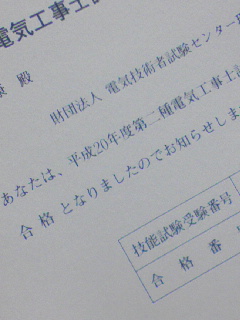 電気工事士試
様 殿
財団法人 電気技術者試験センター
あなたは、平成20年度第二種電気工事士
合格となりましたのでお知らせしま
技能試験受験番号
合格番